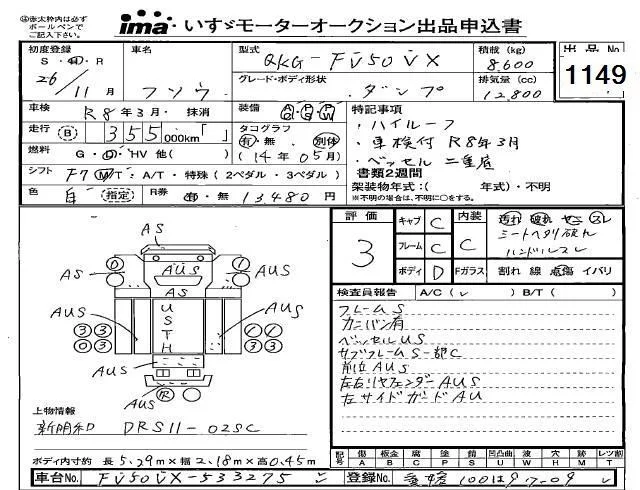 ㊟赤太枠内は必ず
ボールペンで
ご記入下さい。
ima いすゞモーターオークション出品申込書
初度登録 S・H・R
26/11月
車名 フソウ
型式 QKG-FV50VX
積載 (kg) 8,600
出品No. 1149
グレード・ボディ形状 ダンプ
排気量 (cc) 12,800
車検 R8年3月・抹消
装備
特記事項
・ハイルーフ
・車検付 R8年3月
・ベッセル 二重底
走行 B 355,000km「 」
タコグラフ 有・無 別体
(14年05月)
燃料 G・D・HV 他( )
書類2週間
シフト F7 M/T・A/T・特殊(2ペダル・3ペダル)
架装物年式:( 年式)・不明
※不明の場合は、不明に○をする。
色 白 指定
R券 有・無 13480円
評価 3
キャブ C
フレーム C
ボディ D
内装 C
汚れ 破れ ヤニ スレ
シートヘタリ破れ
ハンドルスレ
Fガラス 割れ 線 点傷 イバリ
検査員報告 A/C( レ ) B/T( )
フレームS
カニバン有
ベッセルUS
サブフレームS-部C
前立AUS
左右リヤフェンダーAUS
左サイドガードAU
AS
AS
AUS
AUS
AS
AUS
USTH
AUS
AUS
AUS
AUS
R
上物情報
新明和 DRS11-02SC
ボディ内寸約 長5.29m×幅2.18m×高0.45m
記号 傷 A 板金 B 腐 C 塗 P 錆 S 凹凸曲 U 波 W 穴 H 跡 M レツ割 T
車台No. FV50VX-533275
登録No. 愛媛100は97-09